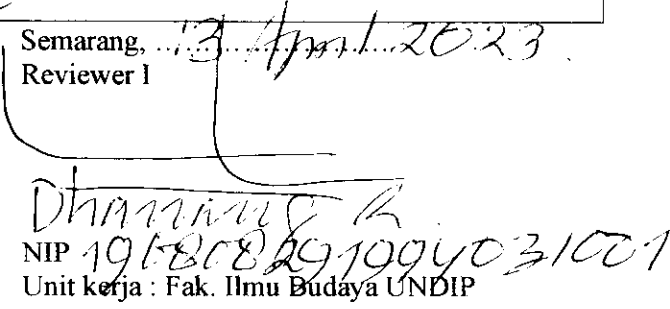 Semarang, ..13 April 2023
Reviewer I
Dhanang R.
NIP 196808291994031001
Unit kerja : Fak. Ilmu Budaya UNDIP